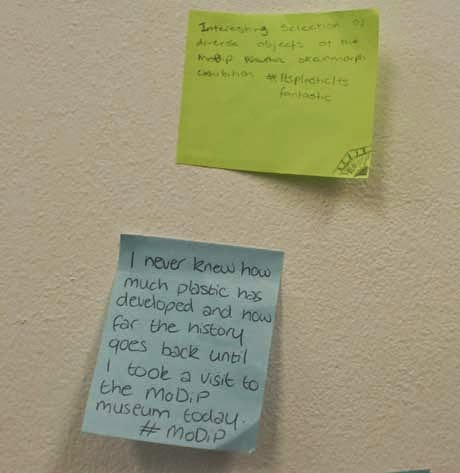 Interesting selection of
diverse objects at the
MoDiP
exhibition #Itsplasticits
fantastic
I never knew how
much plastic has
developed and how
far the history
goes back until
I took a visit to
the MoDiP
museum today.
# MoDiP